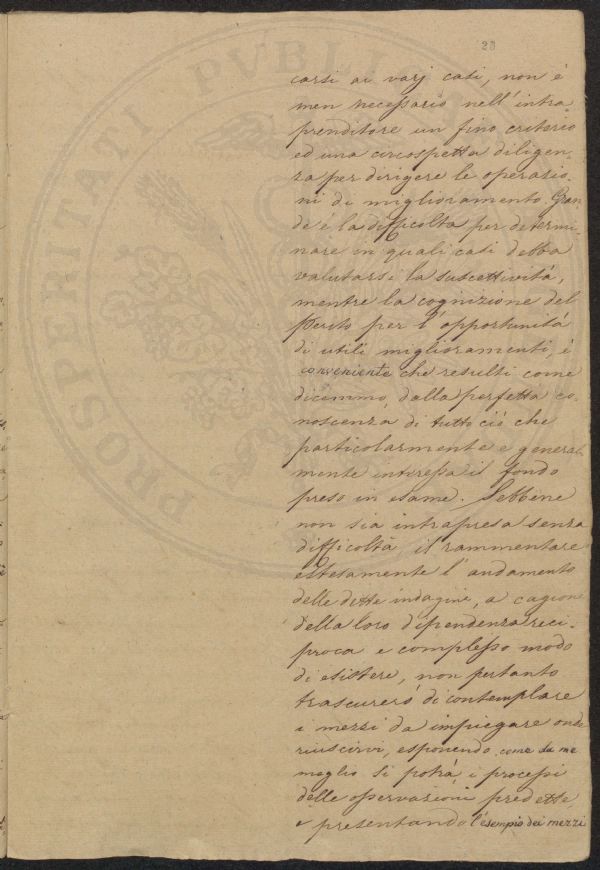 23
carsi ai varj casi, non è
men necessario nell'intra
prenditore un fino criterio
ed una circospetta diligen-
za per dirigere le operazio-
ni di miglioramento. Gran
de è la difficoltà per determi-
nare in quali casi debba
valutarsi la suscettività,
mentre la cognizione del
Perito per l'opportunità
di utili miglioramenti, è
conveniente che resulti come
dicemmo, dalla perfetta co-
noscenza di tutto ciò che
particolarmente e general-
mente interessa il fondo
preso in esame. Sebbene
non sia intrapresa senza
difficoltà il rammentare
estesamente l'andamento
delle dette indagini, a cagione
della loro dipendenza reci-
proca e complesso modo
di esistere, non pertanto
trascurerò di contemplare
i mezzi da impiegare onde
riuscirvi, esponendo come da me
meglio si potrà, i processi
delle osservazioni predette,
e presentando l'esempio dei mezzi
PROSPERITATI PVBLICAE